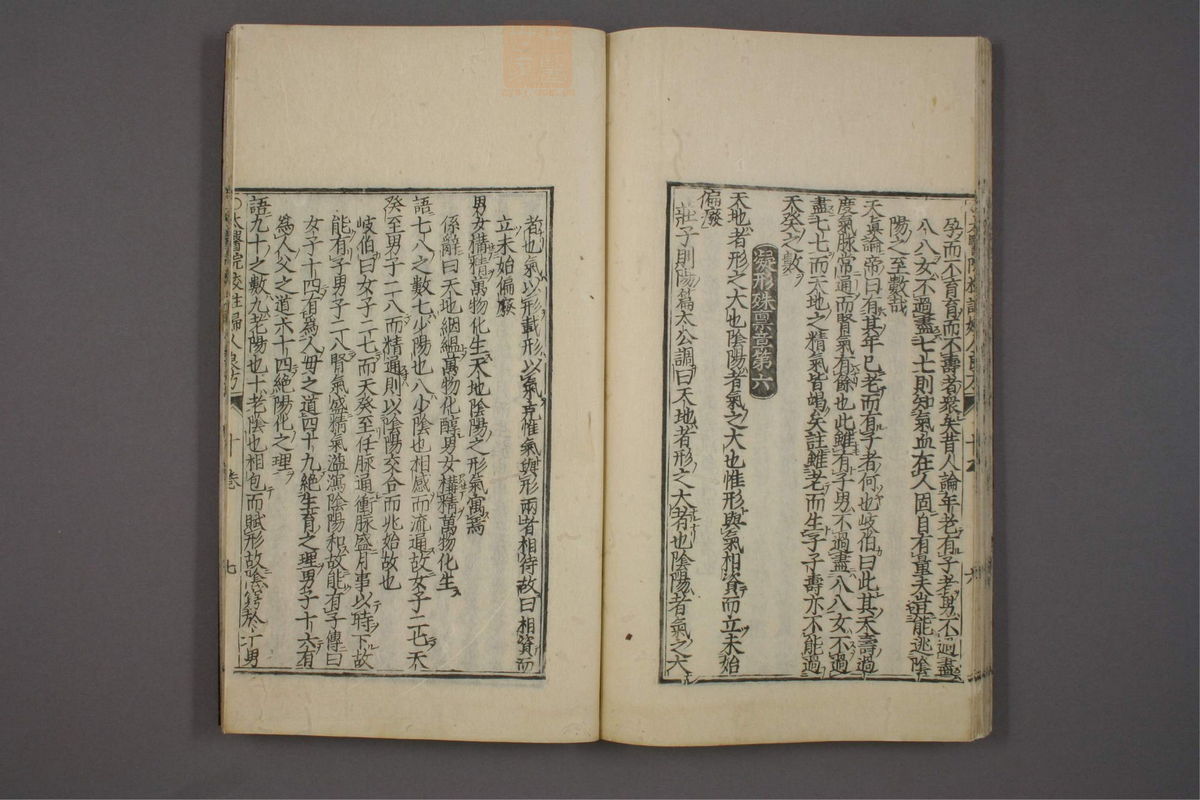 孕而不育育而不壽者衆矣昔人論年老有子者男不過盡
八八女不過盡七七則知氣血在人固自有量夫豈能逃陰
陽之至數哉
天眞論帝曰有其年已老而有子者何也岐伯曰此其天壽過
度氣脉常通而腎氣有餘也此雖有子男不過盡八八女不過
盡七七而天地之精氣皆竭矣註雖老而生子子壽亦不能過
天癸之數
凝形殊禀章第六
天地者形之大也陰陽者氣之大也惟形與氣相資而立未始
偏廢
莊子則陽篇太公調曰天地者形之大者也陰陽者氣之大
者也氣以形載形以氣充惟氣與形兩者相待故曰相資而
立未始偏廢
男女構精萬物化生天地陰陽之形氣寓焉
係辭曰天地絪縕萬物化醇男女構精萬物化生
語七八之數七少陽也八少陰也相感而流通故女子二七天
癸至男子二八而精通則以陰陽交合而兆始故也
岐伯曰女子二七而天癸至任脉通衝脉盛月事以時下故
能有子男子二八腎氣盛精氣溢瀉陰陽和故能有子傳曰
女子十四有爲人母之道四十九絶生育之理男子十六有
爲人父之道六十四絶陽化之理
語九十之數九老陽也十老陰也相包而賦形故陰窮於十男
太醫院校註婦人良方
十卷
七